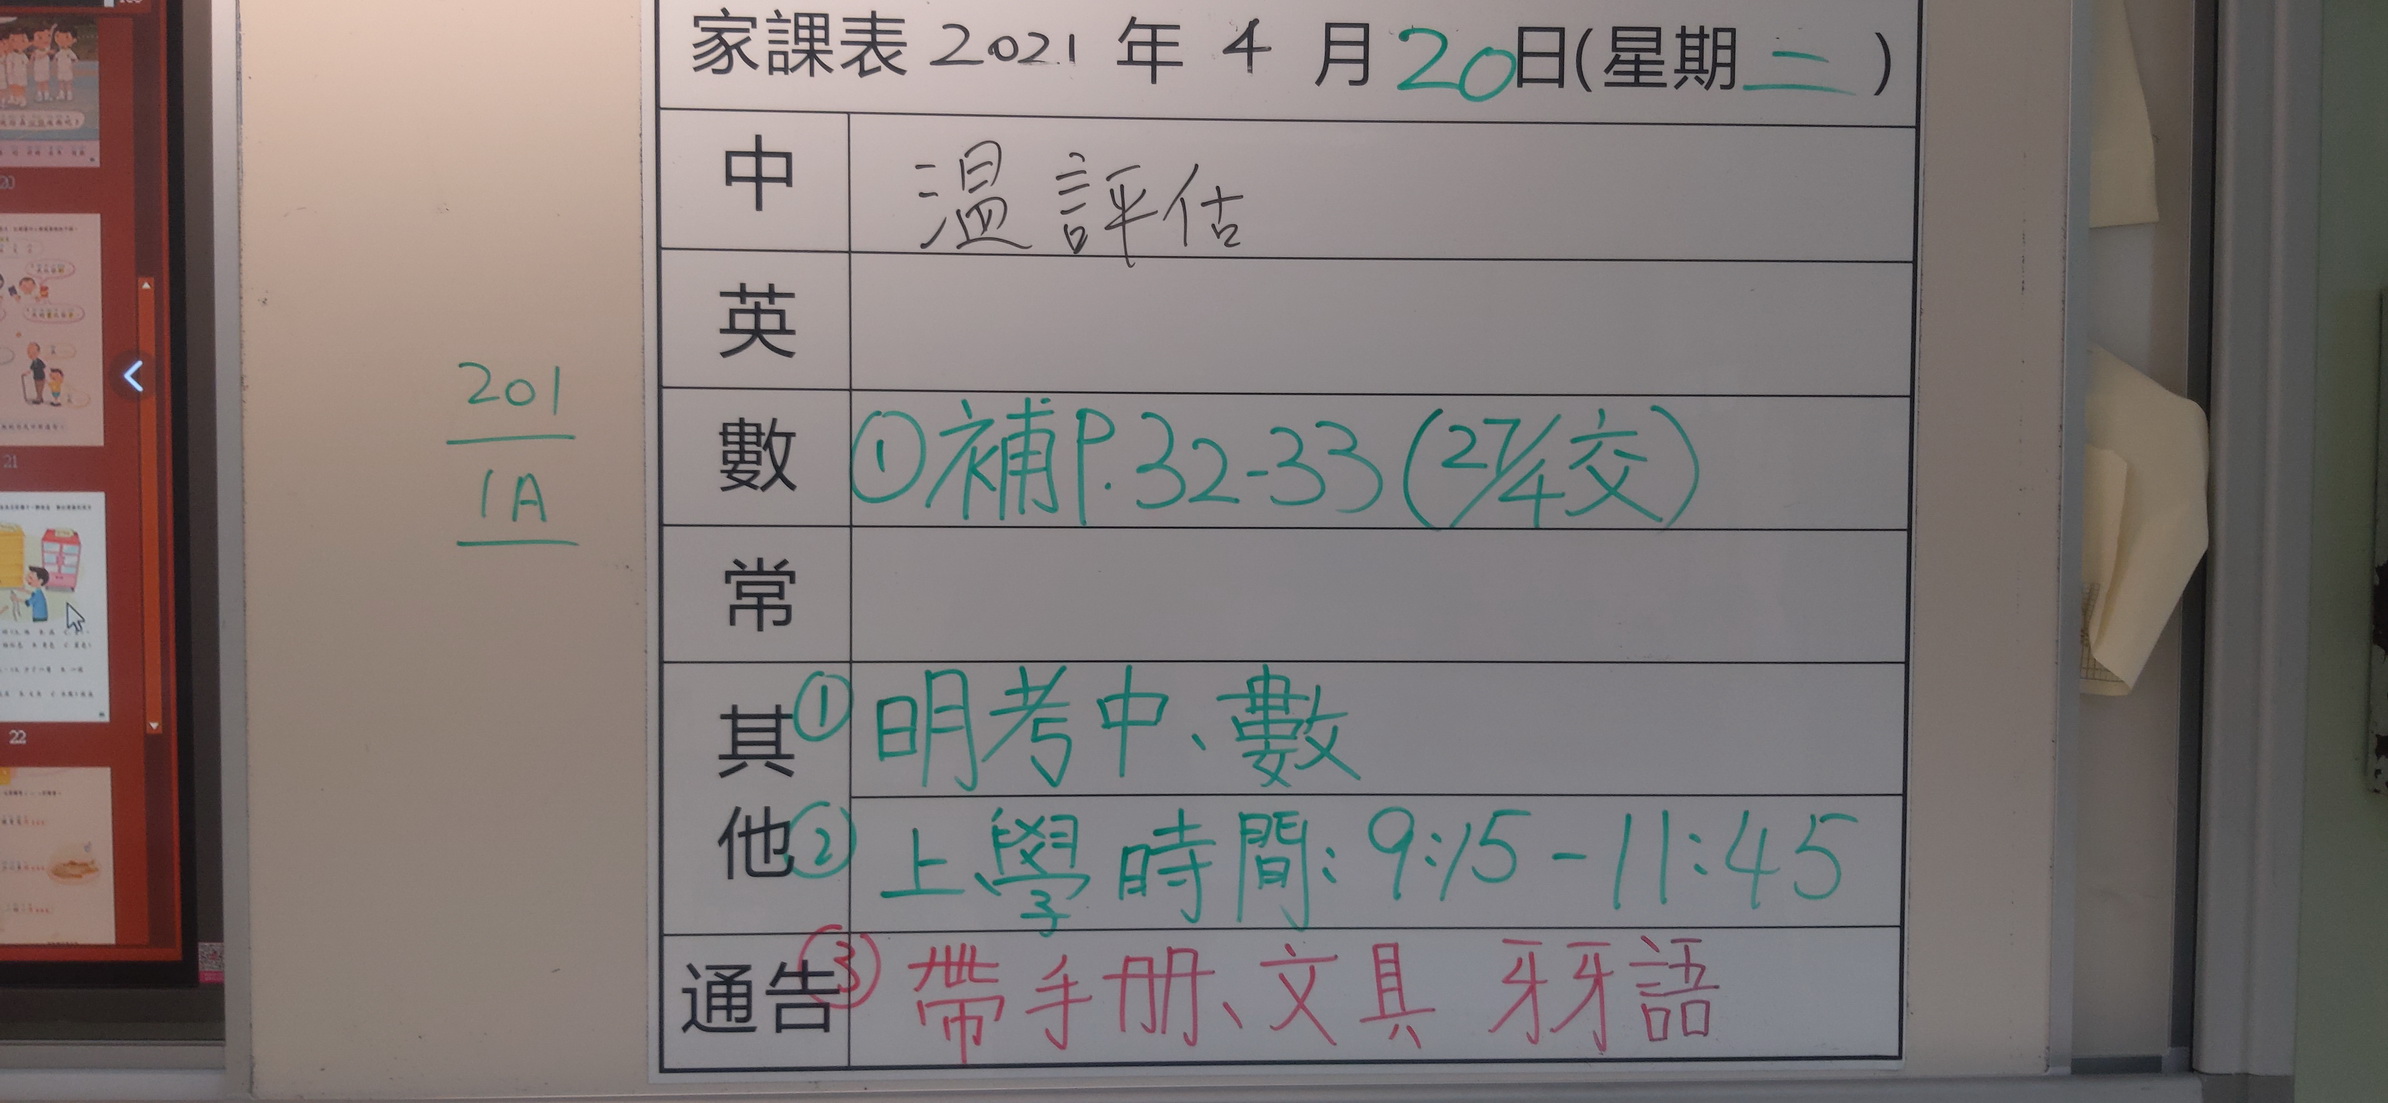 家課表 2021 年 4 月 20日(星期二)
中 温評估
英
數 ①補P.32-33(27/4交)
常
其他 ①明考中、數
②上學時間:9:15-11:45
通告 ③帶手冊、文具 牙牙語
201
1A
20
21
22